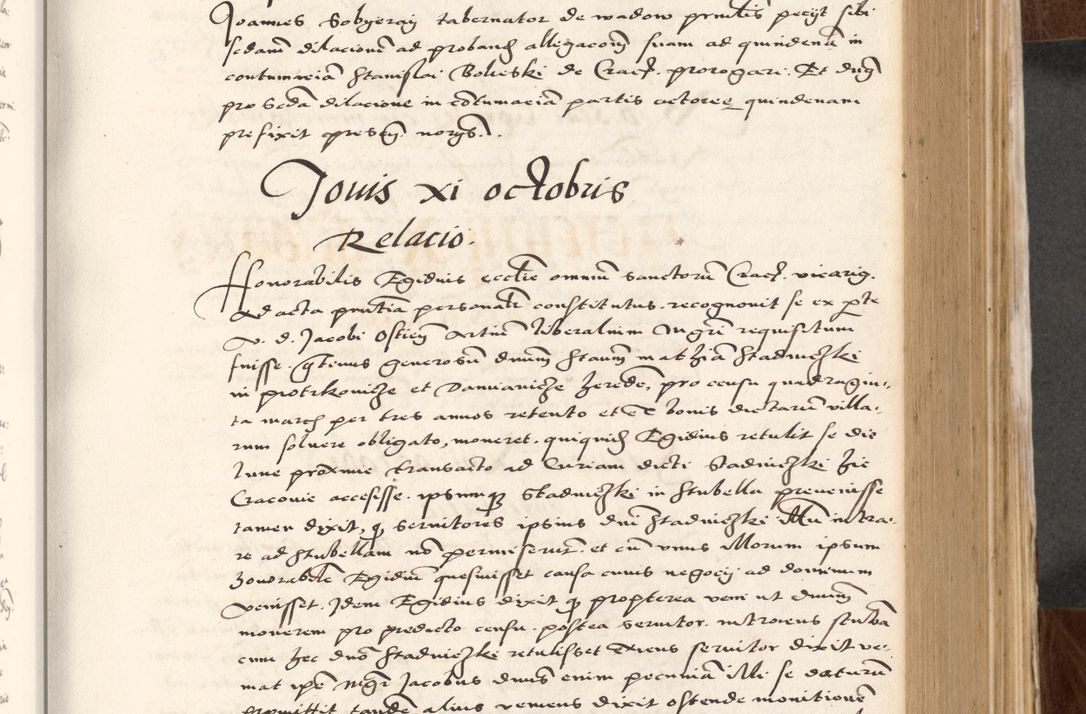 Joannes Sobgeray tabernator de wadow prntis pecijt sibi
scdam dilacionem ad proband allegacom suam ad quindena in
contumacia Stanislai Bolieski de Crac. prorogari. Et dng
pro scda dilacione in cotumacia partis actoree quindenam
prefixit presen
Jouis xi octobris
Relacio.
Honorabilis Egidius ecctie omnium sanctorum Crac. vicarig.
Ad acta prntia personatr constitutus. recognouit se ex pte
v. d. Jacobi Ostien Artium liberalium Mgri requisitum
fuisse. qtenus generosum dnum Mathia Stadniczki
in piotrkowicze et Damianicze herede, pro censu quadragin-
ta march per tres annos retento et de bonis dictarum villa-
rum soluere obligato, moneret. quiquid Egidius retulit se die
lune proxime transacto ad Curiam dicti Stadniczki hic
Cracouie accesisse. ipsumq Stadniczki in stubella preuenisse
tamen dixit, q seruitores ipsius dni Stadniczki illu intra-
re ad stubellam no permiserunt. et cu vnus illorum ipsum
honorabile Egidiu quesiuisset causa cuius negocij ad dominum
venisset. Idem Egidius dixit q propterea veni ut dnum
monerem pro predicto censu. postea seruitor. introiens stuba
cum hec dno Stadniczki retulisset Exiens seruitor dixit ve-
niat ipe Mgr Jacobus dnus enim pecunia illi se daturu
promittit tande alius veniens dixit ostende monitione